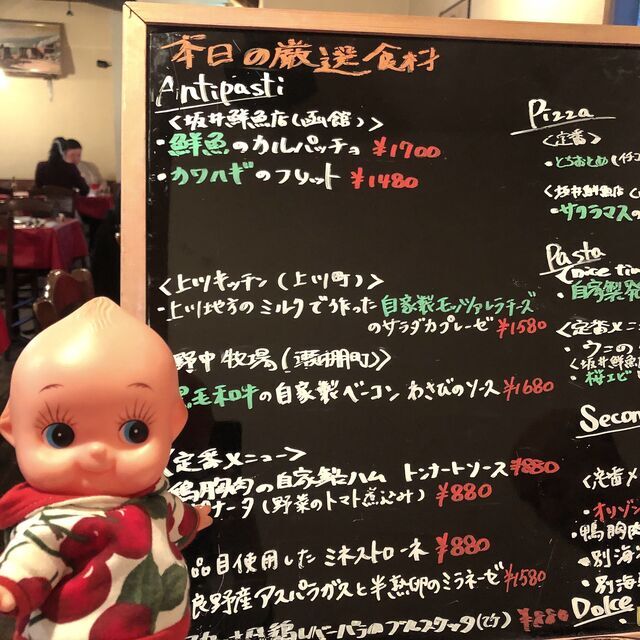 本日の厳選食材
Antipasti
〈坂井鮮魚店(函館)〉
・鮮魚のカルパッチョ ¥1700
・カワハギのフリット ¥1480
〈上川キッチン(上川町)〉
・上川地方のミルクで作った自家製モッツァレラチーズ
のサラダカプレーゼ ¥1580
野中牧場(
黒毛和牛の自家製ベーコン わさびのソース ¥1680
〈定番メニュー〉
鶏胸肉の自家製ハム トンナートソース ¥880
ナータ(野菜のトマト煮込み) ¥880
品目使用したミネストローネ ¥880
良野産アスパラガスと半熟卵のミラネーゼ ¥1580
Pizza
〈定番〉
・とちおとめ(イチゴ
〈坂井鮮魚店(
・サクラマスの
Pasta
・自家製
〈定番メニ
・ウニの
〈坂井鮮魚
・桜エビ
Secon
〈定番メ
・オリゾン
・鴨胸肉
・別海
・別海
Dolce